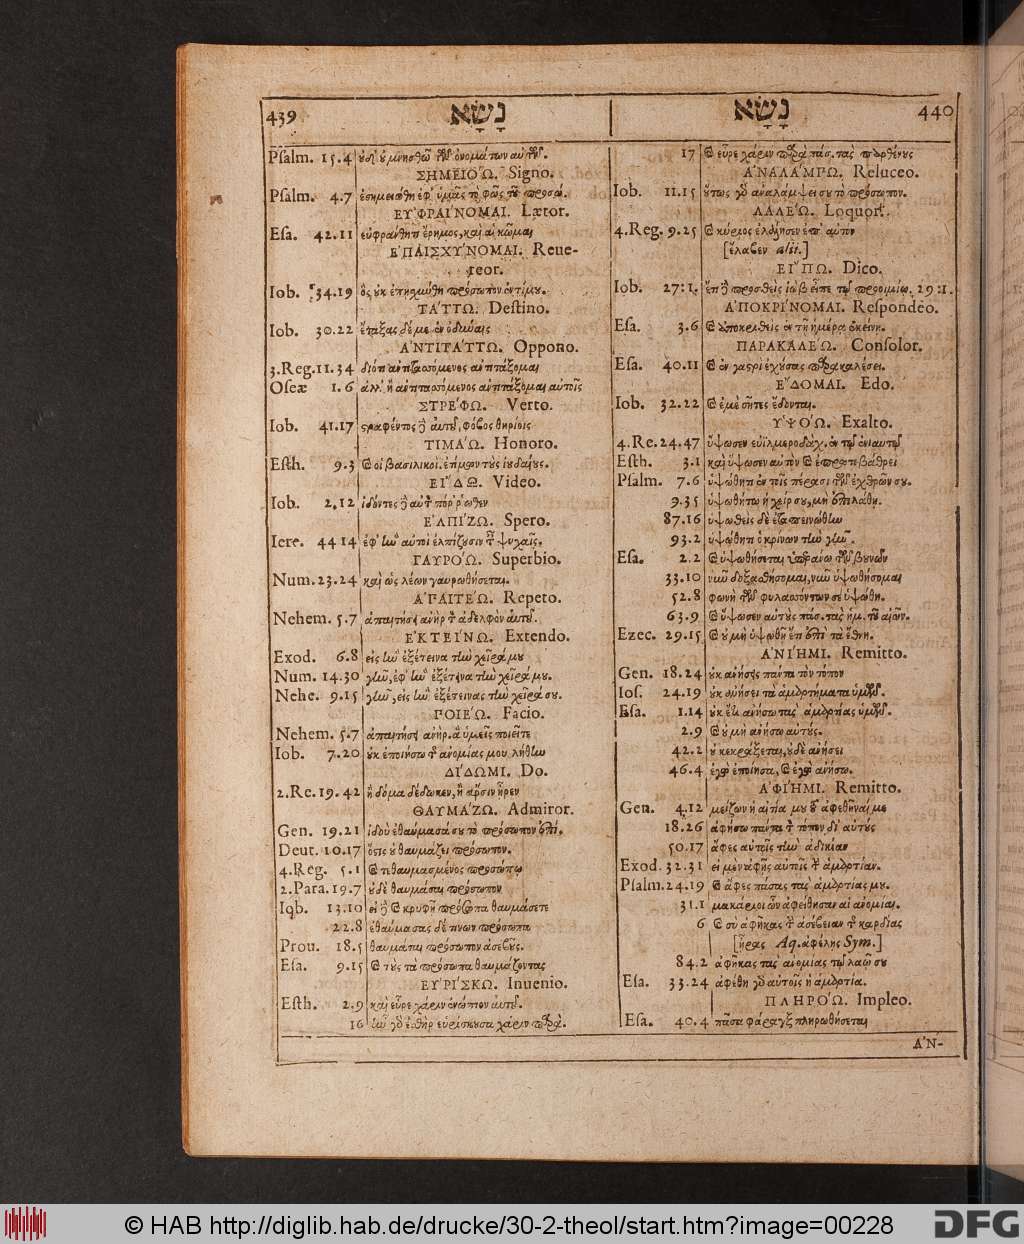 439 נָשָׂא
Psalm. 15.4
ΣΗΜΕΙΟ'Ω. Signo.
Psalm. 4.7
ΕΥ'ΦΡΑΙ'ΝΟΜΑΙ. Lætor.
Esa. 42.11 εὐφρανθητι ἔρημος, καὶ αἱ κῶμαι
Ε'ΠΑΙΣΧΥ'ΝΟΜΑΙ. Reue-
reor.
Iob. 34.19 ὃς οὐκ ἐπῃσχύνθη πρόσωπον ἐντίμου.
ΤΑ'ΤΤΩ. Destino.
Iob. 30.22 ἔταξας δέ με ἐν ὀδύναις
Α'ΝΤΙΤΑ'ΤΤΩ. Oppono.
3.Reg.11.34 διότι ἀντιτασσόμενος ἀντιτάξομαι
Oseæ 1.6 ἀλλ' ἢ ἀντιτασσόμενος ἀντιτάξομαι αὐτοῖς
ΣΤΡΕ'ΦΩ. Verto.
Iob. 41.17 στραφέντος δὲ αὐτοῦ, φόβος θηρίοις
ΤΙΜΑ'Ω. Honoro.
Esth. 9.3 καὶ οἱ βασιλικοὶ ἐτίμων τοὺς ἰουδαίους.
ΕΙ'ΔΩ. Video.
Iob. 2.12 ἰδόντες δὲ αὐτὸν πόρρωθεν
Ε'ΛΠΙ'ΖΩ. Spero.
Iere. 44 14 ἐφ' ἣν αὐτοὶ ἐλπίζουσιν ταῖς ψυχαῖς.
ΓΑΥΡΟ'Ω. Superbio.
Num. 23.24 καὶ ὡς λέων γαυρωθήσεται.
Α'ΠΑΙΤΕ'Ω. Repeto.
Nehem. 5.7 ἀπαιτήσει ἀνὴρ τὸν ἀδελφὸν αὐτοῦ.
Ε'ΚΤΕΙ'ΝΩ. Extendo.
Exod. 6.8 εἰς ἣν ἐξέτεινα τὴν χεῖρά μου
Num. 14.30 γῆν, ἐφ' ἣν ἐξέτεινα τὴν χεῖρά μου.
Nehe. 9.15 γῆν, εἰς ἣν ἐξέτεινας τὴν χεῖρά σου.
ΠΟΙΕ'Ω. Facio.
Nehem. 5.7 ἀπαιτήσει ἀνὴρ. ἃ ὑμεῖς ποιεῖτε
Iob. 7.20 οὐκ ἐποιήσω τῆς ἀνομίας μου λήθην
ΔΙ'ΔΩΜΙ. Do.
2.Re. 19.42 ἢ δόμα δέδωκεν, ἢ ἄρσιν ἦρεν
ΘΑΥΜΑ'ΖΩ. Admiror.
Gen. 19.21 ἰδοὺ ἐθαύμασά σου τὸ πρόσωπον ἐπί.
Deut. 10.17 ὅστις οὐ θαυμάζει πρόσωπον.
4.Reg. 5.1 καὶ τεθαυμασμένος προσώπῳ
2.Para. 19.7 οὐδὲ θαυμάσαι πρόσωπον
Iob. 13.10 εἰ δὲ καὶ κρυφῇ πρόσωπα θαυμάσετε
22.8 ἐθαύμασας δέ τινων πρόσωπα
Prou. 18.5 θαυμάσαι πρόσωπον ἀσεβοῦς.
Esa. 9.15 καὶ τοὺς τὰ πρόσωπα θαυμάζοντας
ΕΥ'ΡΙ'ΣΚΩ. Inuenio.
Esth. 2.9 καὶ εὗρε χάριν ἐνώπιον αὐτοῦ.
16 ἦν γὰρ ἐσθὴρ εὑρίσκουσα χάριν παρὰ.
נָשָׂא 440
17 καὶ εὗρε χάριν παρὰ πάσ. τὰς παρθένους
Α'ΝΑΛΑ'ΜΠΩ. Reluceo.
Iob. 11.15 οὕτως γὰρ ἀναλάμψει σου τὸ πρόσωπον.
ΛΑΛΕ'Ω. Loquor.
4.Reg. 9.25 καὶ κύριος ἐλάλησεν ἐπ' αὐτὸν
[ἔλαβεν alii.]
ΕΙ'ΠΩ. Dico.
Iob. 27.1. ἔτι δὲ προσθεὶς ἰὼβ εἶπε τῷ προοιμίῳ. 29.1.
Α'ΠΟΚΡΙ'ΝΟΜΑΙ. Respondeo.
Esa. 3.6 καὶ ἀποκριθεὶς ἐν τῇ ἡμέρᾳ ἐκείνῃ.
ΠΑΡΑΚΑΛΕ'Ω. Consolor.
Esa. 40.11 καὶ ἐν γαστρὶ ἐχούσας παρακαλέσει.
Ε'ΔΟΜΑΙ. Edo.
Iob. 32.22 καὶ ἐμὲ σῆτες ἔδονται.
Υ'ΨΟ'Ω. Exalto.
4.Re. 24.47 ὕψωσεν εὐϊλμεροδὰχ. ἐν τῷ ἐνιαυτῷ
Esth. 3.1 καὶ ὕψωσεν αὐτὸν καὶ ἐπρωτοβάθρει
Psalm. 7.6 ὑψώθητι ἐν τοῖς πέρασι τῶν ἐχθρῶν σου.
9.35 ὑψωθήτω ἡ χείρ σου, μὴ ἐπιλάθῃ.
87.16 ὑψωθεὶς δὲ ἐταπεινώθην
93.2 ὑψώθητι ὁ κρίνων τὴν γῆν.
Esa. 2.2 καὶ ὑψωθήσεται ὑπεράνω τῶν βουνῶν
33.10 νῦν δοξασθήσομαι, νῦν ὑψωθήσομαι
52.8 φωνὴ τῶν φυλασσόντων σε ὑψώθη.
63.9 καὶ ὕψωσεν αὐτοὺς πάσ. τὰς ἡμ. τοῦ αἰῶν.
Ezec. 29.15 καὶ οὐ μὴ ὑψωθῇ ἔτι ἐπὶ τὰ ἔθνη.
Α'ΝΙ'ΗΜΙ. Remitto.
Gen. 18.24 οὐκ ἀνήσεις πάντα τὸν τόπον
Ios. 24.19 οὐκ ἀνήσει τὰ ἁμαρτήματα ὑμῶν.
Esa. 1.14 οὐκ ἔτι ἀνήσω τὰς ἁμαρτίας ὑμῶν.
2.9 καὶ οὐ μὴ ἀνήσω αὐτούς.
42.2 οὐ κεκράξεται, οὐδὲ ἀνήσει
46.4 ἐγὼ ἐποίησα, καὶ ἐγὼ ἀνήσω.
Α'ΦΙ'ΗΜΙ. Remitto.
Gen. 4.12 μείζων ἡ αἰτία μου τοῦ ἀφεθῆναί με
18.26 ἀφήσω πάντα τὸν τόπον δι' αὐτούς
50.17 ἄφες αὐτοῖς τὴν ἀδικίαν
Exod. 32.31 εἰ μὲν ἀφῇς αὐτοῖς τὴν ἁμαρτίαν.
Psalm. 24.19 καὶ ἄφες πάσας τὰς ἁμαρτίας μου.
31.1 μακάριοι ὧν ἀφείθησαν αἱ ἀνομίαι.
6 καὶ σὺ ἀφῆκας τὴν ἀσέβειαν τῆς καρδίας
[ἦρας Aq. ἀφέλῃς Sym.]
84.2 ἀφῆκας τὰς ἀνομίας τῷ λαῷ σου
Esa. 33.24 ἀφέθη γὰρ αὐτοῖς ἡ ἁμαρτία.
ΠΛΗΡΟ'Ω. Impleo.
Esa. 40.4 πᾶσα φάραγξ πληρωθήσεται
Α'Ν-
© HAB http://diglib.hab.de/drucke/30-2-theol/start.htm?image=00228
DFG